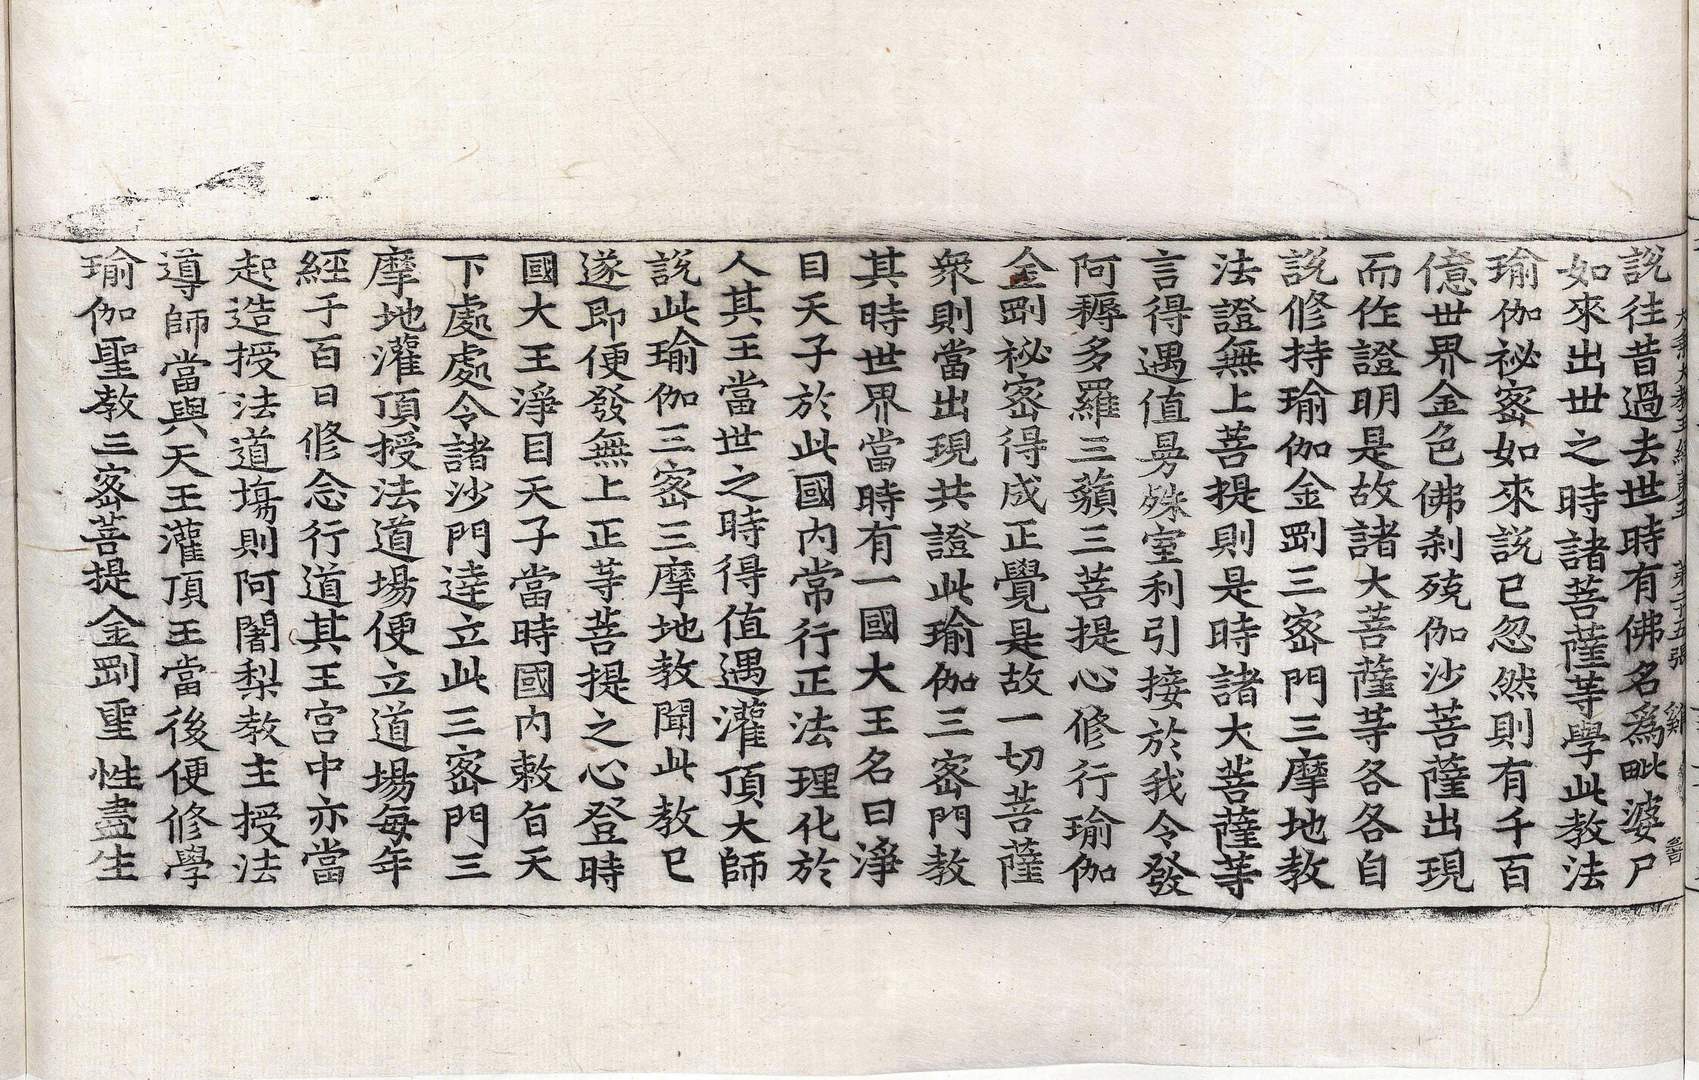 大乘大教王經第五 第二十五張 雞
說往昔過去世時有佛名爲毗婆尸
如來出世之時諸菩薩等學此教法
瑜伽祕密如來說已忽然則有千百
億世界金色佛刹殑伽沙菩薩出現
而作證明是故諸大菩薩等各各自
說修持瑜伽金剛三密門三摩地教
法證無上菩提則是時諸大菩薩等
言得遇值曼殊室利引接於我令發
阿耨多羅三藐三菩提心修行瑜伽
金剛祕密得成正覺是故一切菩薩
衆則當出現共證此瑜伽三密門教
其時世界當時有一國大王名曰淨
目天子於此國內常行正法理化於
人其王當世之時得值遇灌頂大師
說此瑜伽三密三摩地教聞此教已
遂即便發無上正等菩提之心登時
國大王淨目天子當時國內敕旨天
下處處令諸沙門達立此三密門三
摩地灌頂授法道場便立道場每年
經于百日修念行道其王宮中亦當
起造授法道塲則阿闍梨教主授法
導師當與天王灌頂王當後便修學
瑜伽聖教三密菩提金剛聖性盡生